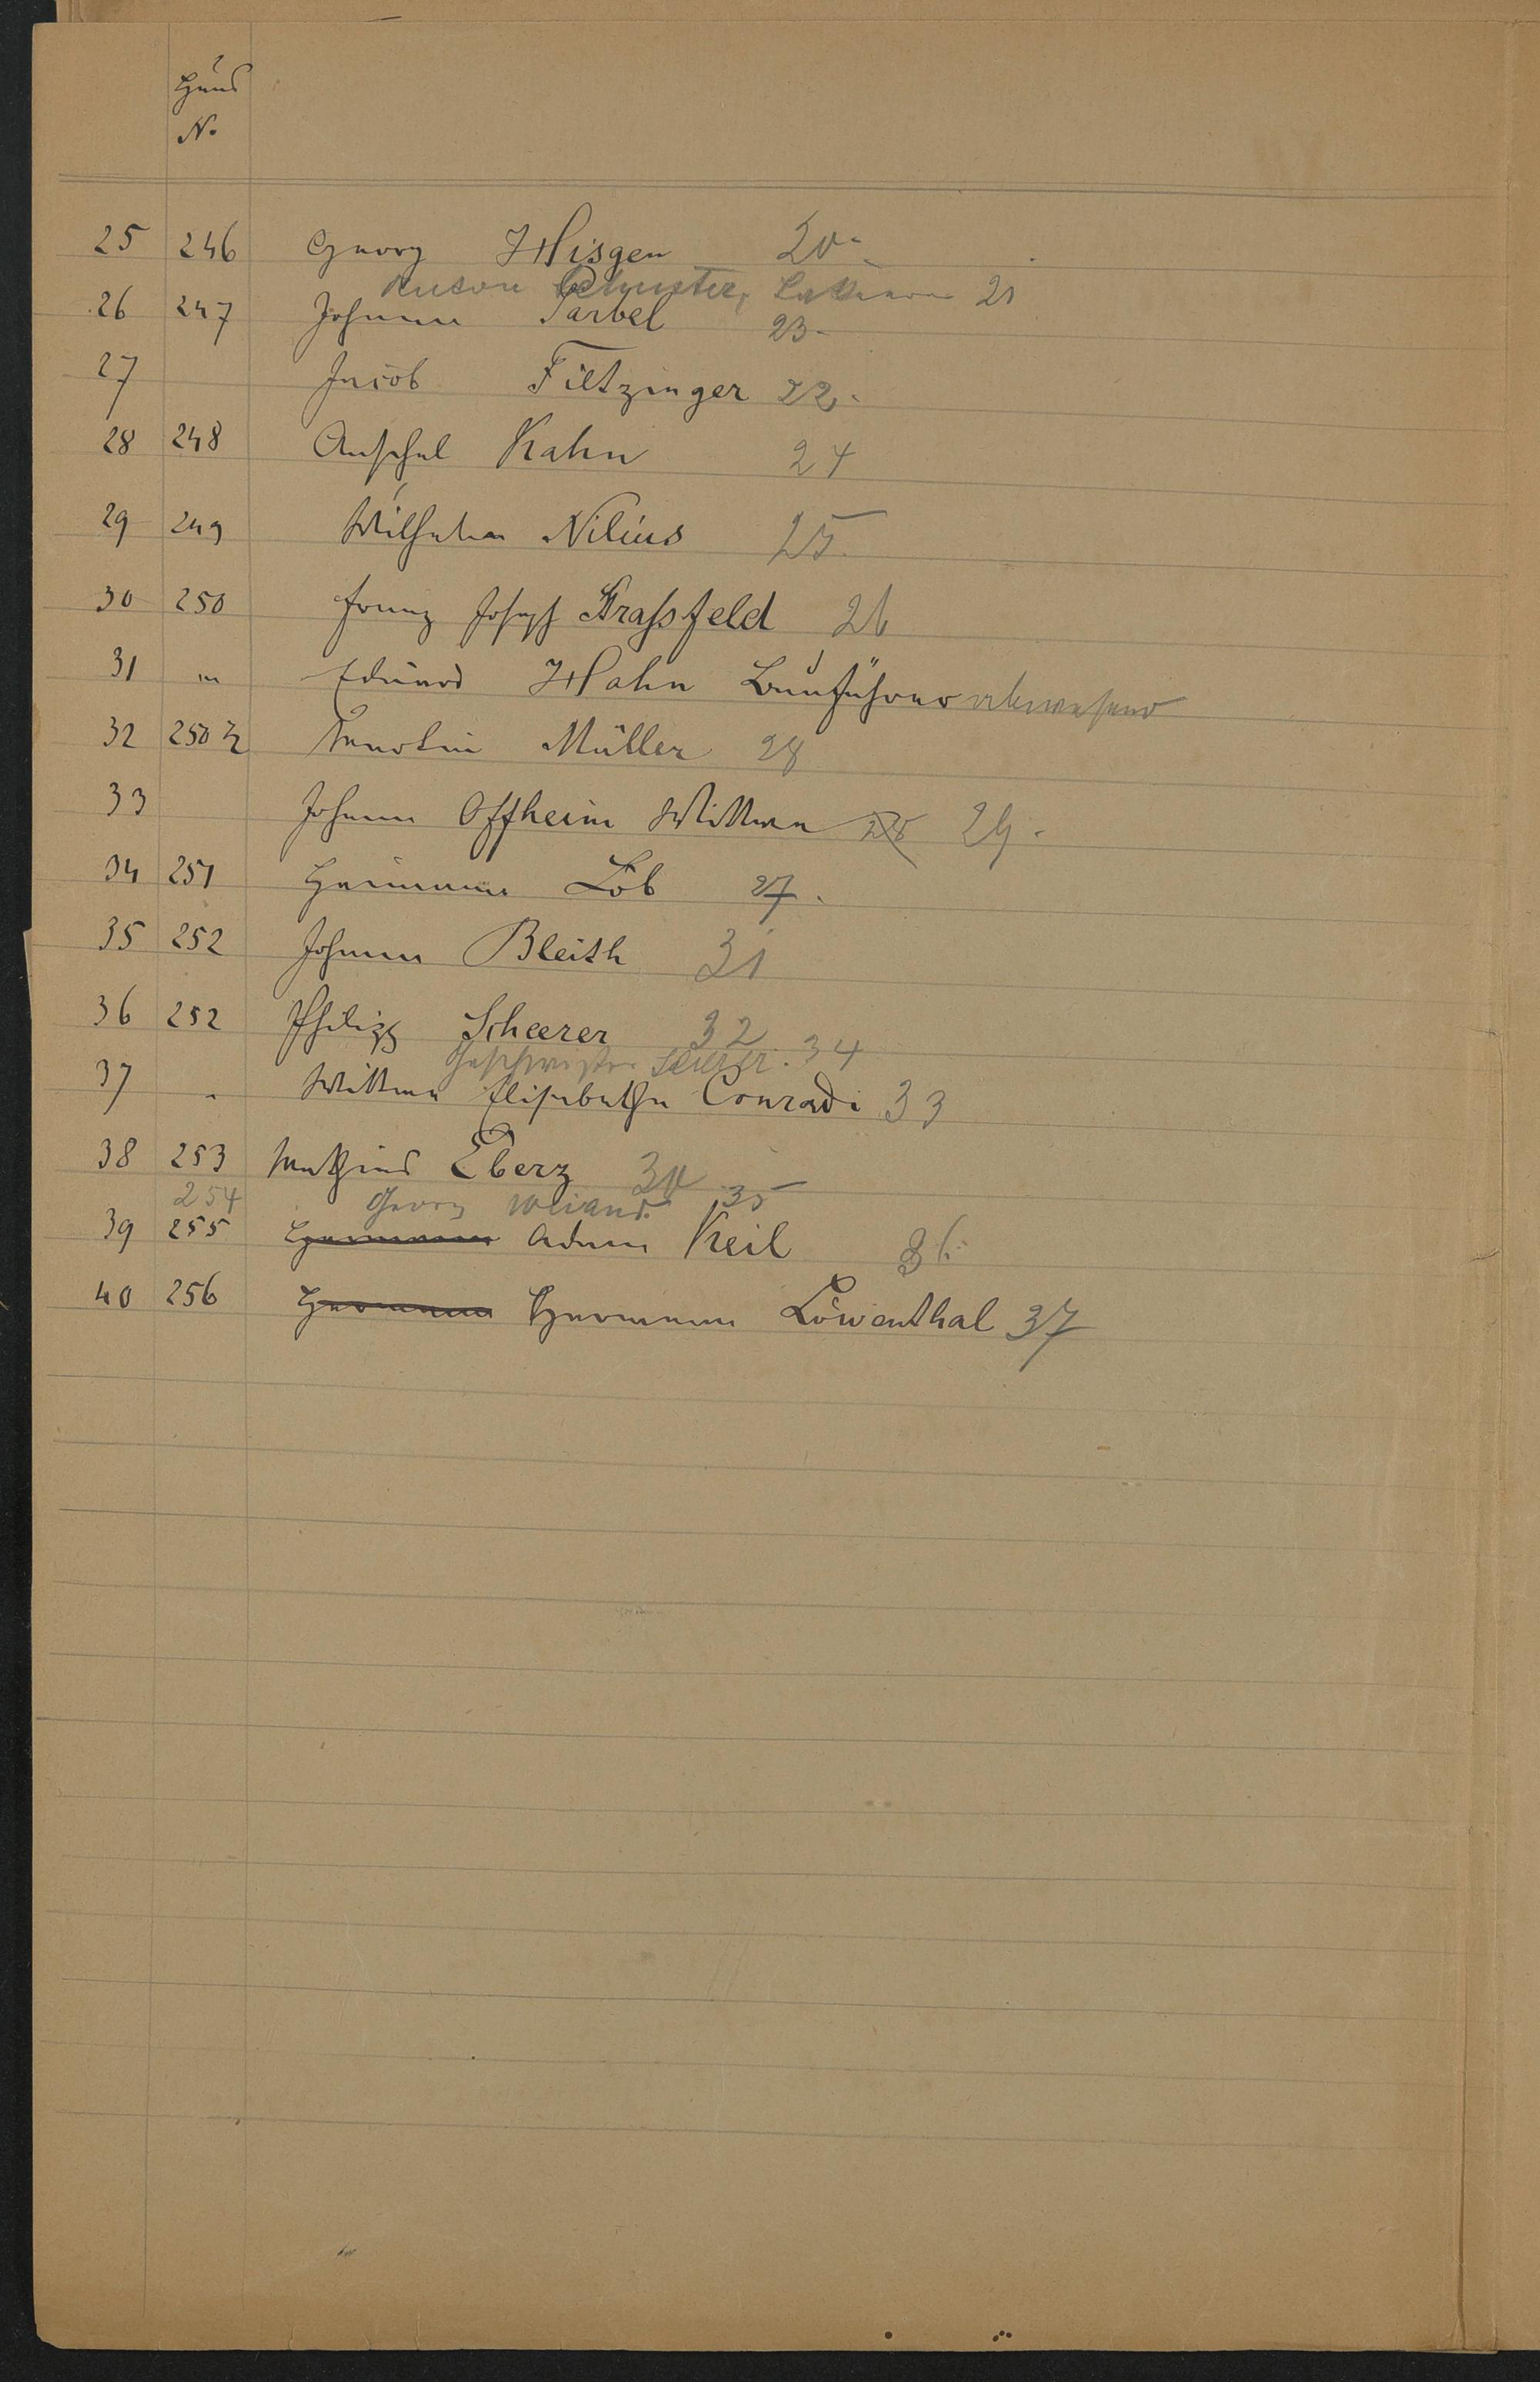 Haus
No
25 246 Georg Hisgen 20
Anton Schuster, 21
26 247 Johann Sarbel 23
27 Jacob Filtzinger 22
28 248 Anschel Kahn 24
29 249 Wilhelm Nilius 25
30 250 Franz Joseph Straßfeld 26
31 " Eduard Hahn Bauführer abwesend
32 250 1/2 Müller 28
33 Johann Offheim Wittwe 28 29
34 251 Hermann Löb 27
35 252 Johann Bleith 31
36 252 Philipp Scheerer 32
Geschwister Scherer. 34
37 " Wittwe Elisabetha Conradi 33
38 253 Mathias Eberz 30
254 Georg Weiand 35
39 255 Hermann Adam Keil 36
40 256 Hermann Hermann Löwenthal 37